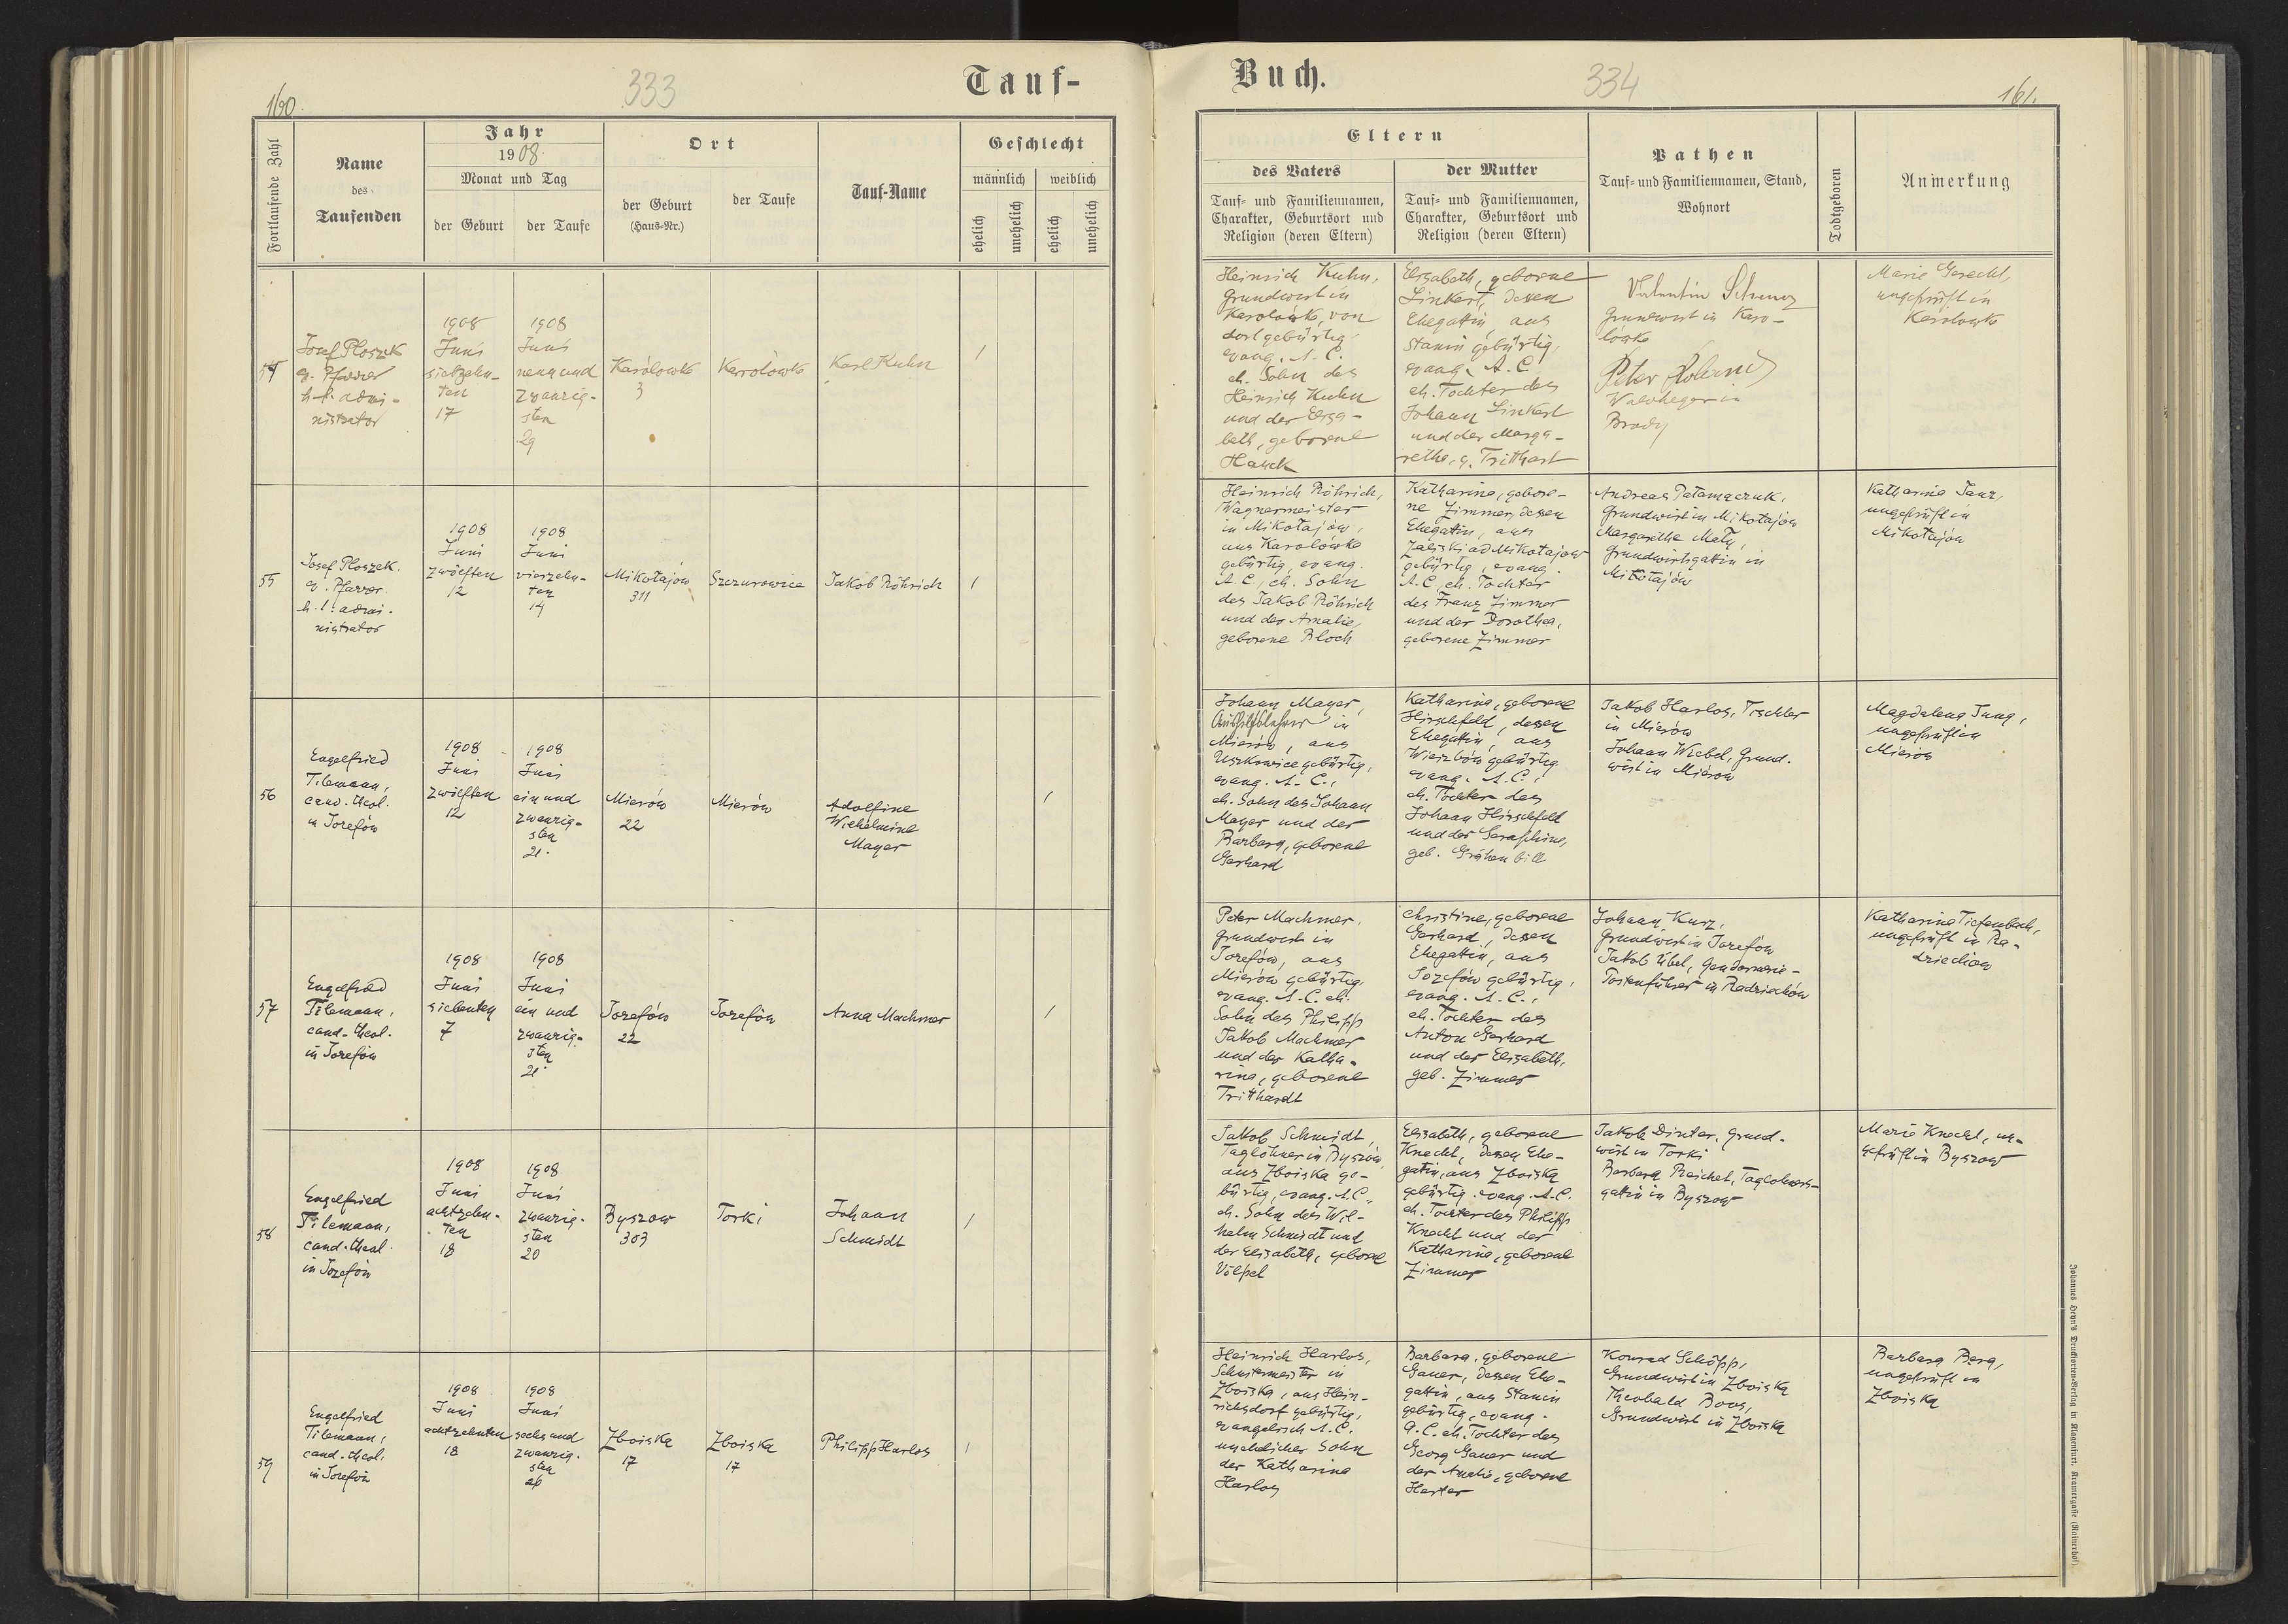 160.
333
Tauf-
Fortlaufende Zahl
Name
des
Taufenden
Jahr
1908
Monat und Tag
der Geburt
der Taufe
Ort
der Geburt
(Haus-Nr.)
der Taufe
Tauf-Name
Geschlecht
männlich
weiblich
ehelich
unehelich
ehelich
unehelich
54
Josef Ploszek
ev. Pfarrer
h. t. admi-
nistrator
1908
Juni
siebzehn-
ten
17
1908
Juni
neun und
zwanzig-
sten
29
Karolówka
3
Karolówka
Karl Kuhn
/
55
Josef Ploszek.
ev. Pfarrer
h. t. admi-
nistrator
1908
Juni
zwölften
12
1908
Juni
vierzehn-
ten
14
Mikołajów
311
Szczurowice
Jakob Röhrich
/
56
Engelfried
Tilemann,
cand. theol.
in Josefów
1908
Juni
zwölften
12
1908
Juni
ein und
zwanzig-
sten
21.
Mierów
22
Mierów
Adolfine
Wilhelmine
Mayer
/
57
Engelfried
Tilemann,
cand. theol.
in Josefów
1908
Juni
siebenten
7
1908
Juni
ein und
zwanzig-
sten
21.
Josefów
22
Josefów
Anna Machmer
/
58
Engelfried
Tilemann,
cand. theol.
in Josefów
1908
Juni
achtzehn-
ten
18
1908
Juni
zwanzig-
sten
20
Byszow
303
Torki
Johann
Schmidt
/
59
Engelfried
Tilemann,
cand. theol.
in Josefów
1908
Juni
achtzehnten
18
1908
Juni
sechs und
zwanzig-
sten
26
Zboiska
17
Zboiska
17
Philipp Harlos
/
Buch.
334
161.
Eltern
des Vaters
Tauf- und Familiennamen,
Charakter, Geburtsort und
Religion (deren Eltern)
der Mutter
Tauf- und Familiennamen,
Charakter, Geburtsort und
Religion (deren Eltern)
Pathen
Tauf- und Familiennamen, Stand,
Wohnort
Todtgeboren
Anmerkung
Heinrich Kuhn,
Grundwirt in
Karolówka, von
dort gebürtig
evang. A. C.
eh. Sohn des
Heinrich Kuhn
und der Elisa-
beth, geborene
Hauck
Elisabeth, geborene
Linkert, dessen
Ehegattin, aus
Stanin gebürtig,
evang. A. C.
eh. Tochter des
Johann Linkert
und der Marga-
rethe, g. Tritthart
Valentin
Grundwirt in Karo-
lówka
Peter
Waldheger in
Brody
Marie Gerecht,
ungeprüft in
Karolowka
Heinrich Röhrich,
Wagnermeister
in Mikołajów,
aus Karolówka
gebürtig, evang.
A. C., eh. Sohn
des Jakob Röhrich
und der Amalie,
geborene Bloch
Katharina, gebore-
ne Zimmer, dessen
Ehegattin, aus
Zaliski ad Mikołajow
gebürtig, evang.
A. C., eh. Tochter
des Franz Zimmer
und der Dorothea,
geborene Zimmer
Andreas Patamaczuk,
Grundwirt in Mikołajow
Margarethe Mały,
Grundwirtsgattin in
Mikołajów
Katharina Janz,
ungeprüft in
Mikołajów
Johann Mayer,
Aushilfslehrer in
Mierów, aus
Uszkowice gebürtig,
evang. A. C.,
eh. Sohn des Johann
Mayer und der
Barbara, geborene
Gerhard
Katharina, geborene
Hirschfeld, dessen
Ehegattin, aus
Wierzbów gebürtig
evang. A. C.,
eh. Tochter des
Johann Hirschfeld
und der Seraphine,
geb. Grähenbill
Jakob Harlos, Tischler
in Mierów
Johann Wiebel, Grund-
wirt in Mierow
Magdalena Jung,
ungeprüft in
Mierów
Peter Machmer,
Grundwirt in
Josefów, aus
Mierów gebürtig,
evang. A. C. eh.
Sohn des Philipp
Jakob Machmer
und der Katha-
rina, geborene
Tritthardt
Christine, geborene
Gerhard, dessen
Ehegattin, aus
Josefów gebürtig,
evang. A. C.,
eh. Tochter des
Anton Gerhard
und der Elisabeth,
geb. Zimmer
Johann Kurz,
Grundwirt in Josefów
Jakob Übel, Gendarmerie-
Postenführer in Radziechów
Katharina Tiefenbach,
ungeprüft in Ra-
dziechow
Jakob Schmidt,
Taglöhner in Byszów,
aus Zboiska ge-
bürtig, evang. A. C.
eh. Sohn des Wil-
helm Schmidt und
der Elisabeth, geborene
Völpel
Elisabeth, geborene
Knecht, dessen Ehe-
gattin, aus Zboiska
gebürtig. evang. A. C.
eh. Tochter des Philipp
Knecht und der
Katharina, geborene
Zimmer
Jakob Dinter, Grund-
wirt in Torki
Barbara Reichet, Taglöhners-
gattin in Byszow
Marie Knecht, un-
geprüft in Byszow
Heinrich Harlos,
Schustermeister in
Zboiska, aus Hein-
richsdorf gebürtig,
evangelisch A. C.
unehelicher Sohn
der Katharina
Harlos
Barbara, geborene
Gauer, dessen Ehe-
gattin, aus Stanin
gebürtig, evang.
A. C. eh. Tochter des
Georg Gauer und
der Amalie, geborene
Harter
Konrad Schöpp,
Grundwirt in Zboiska
Theobald Boos,
Grundwirt in Zboiska
Barbara Berg,
ungeprüft in
Zboiska
Johannes Heyn's Drucksorten-Verlag in Klagenfurt, Kramergasse (Rainerhof).